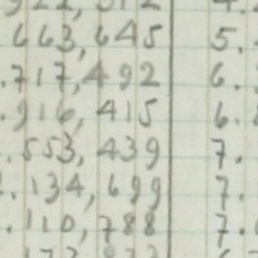 663,645 5.
.717,492 6.
.916,415 6.
.553,439 7.
.134,699 7.
.110,788 7.